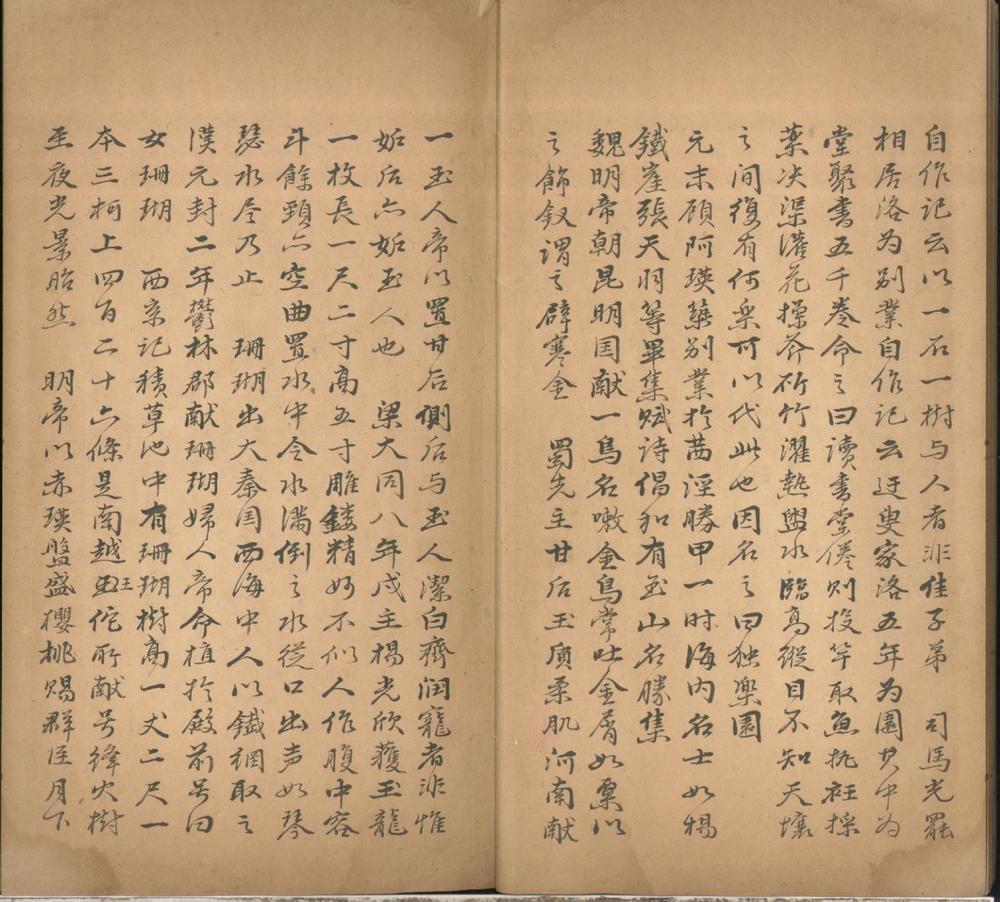 自作記云以一石一樹与人者非佳子弟　司馬光罷
相居洛为别業自作记云迂叟家洛五年为園其中为
堂聚書五千卷命之曰讀書堂倦则投竿取魚执衽採
薬决渠灌花操斧斫竹濯热盥水臨高縱目不知天壤
之间復有何楽可以代此也因名之曰独楽園
元末顾阿瑛築别業於茜涇勝甲一时海内名士如杨
鐵崖張天羽等畢集赋诗倡和有玉山名勝集
魏明帝朝昆明国献一鳥名嗽金鳥常吐金屑如粟以
之飾釵谓之辟寒金　蜀先主甘后玉质柔肌河南献
一玉人帝以置甘后側后与玉人潔白齊润寵者非惟
妬后亦妬玉人也　梁大同八年戍主杨光欣獲玉龍
一枚長一尺二寸高五寸雕鏤精妙不似人作腹中容
斗餘頸亦空曲置水中令水満倒之水從口出声如琴
瑟水尽乃止　珊瑚出大秦国西海中人以鐵網取之
漢元封二年鬱林郡献珊瑚婦人帝命植於殿前号曰
女珊瑚　西京记積草池中有珊瑚樹高一丈二尺一
本三柯上四百六十六條是南越王佗所献号絳火樹
至夜光景昭然　明帝以赤瑛盤盛櫻桃赐群臣月下